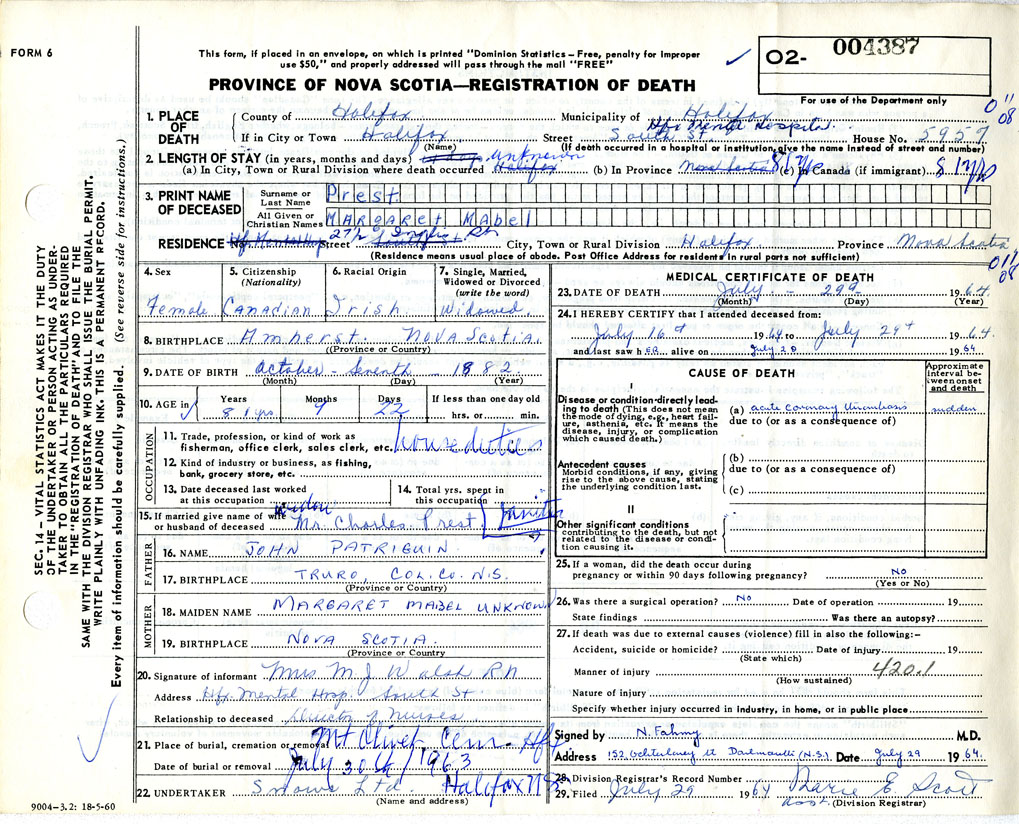 FORM 6
This form, if placed in an envelope, on which is printed "Dominion Statistics – Free, penalty for improper
use $50," and properly addressed will pass through the mail "FREE"
O2- 004387
PROVINCE OF NOVA SCOTIA—REGISTRATION OF DEATH
For use of the Department only
1. PLACE OF DEATH
County of Halifax Municipality of Halifax
011 08
Hfx Mental Hospital
If in City or Town Halifax Street South St House No. 5957
(Name) (If death occurred in a hospital or institution give the name instead of street and number)
2. LENGTH OF STAY (in years, months and days) unknown
(a) In City, Town or Rural Division where death occurred Halifax (b) In Province Nova Scotia 81 yrs (c) In Canada (if immigrant) 81 yrs
3. PRINT NAME OF DECEASED
Surname or Last Name Prest
All Given or Christian Names MARGARET MABEl
RESIDENCE Hfx Mental Hosp 27½ Inglis Rd Street South St City, Town or Rural Division Halifax Province Nova Scotia
(Residence means usual place of abode. Post Office Address for residents in rural parts not sufficient)
011 08
4. Sex Female
5. Citizenship (Nationality) Canadian
6. Racial Origin Irish
7. Single, Married, Widowed or Divorced (write the word) Widowed
8. BIRTHPLACE Amherst NOVA SCOTIA.
(Province or Country)
9. DATE OF BIRTH October - Seventh - 1882
(Month) (Day) (Year)
10. AGE in Years 81 yrs Months 9 Days 22 If less than one day old hrs. or min.
OCCUPATION
11. Trade, profession, or kind of work as
fisherman, office clerk, sales clerk, etc. house duties
12. Kind of industry or business, as fishing,
bank, grocery store, etc.
13. Date deceased last worked
at this occupation
14. Total yrs. spent in
this occupation
15. If married give name of wife
or husband of deceased Mr. Charles Prest Janitor
FATHER
16. NAME JOHN PATRIQUIN
17. BIRTHPLACE TRURO, COL. CO. N.S.
(Province or Country)
MOTHER
18. MAIDEN NAME MARGARET MABEL UNKNOWN
19. BIRTHPLACE NOVA SCOTIA.
(Province or Country)
20. Signature of informant Mrs M J Walsh RN
Address Hfx Mental Hosp. South St
Relationship to deceased Director of Nurses
21. Place of burial, cremation or removal Mt Olivet Cem. Hfx
Date of burial or removal July 30th/1963
22. UNDERTAKER Snows Ltd. Halifax NS
(Name and address)
9004-3.2: 18-5-60
MEDICAL CERTIFICATE OF DEATH
23. DATE OF DEATH July - 29th 1964
(Month) (Day) (Year)
24. I HEREBY CERTIFY that I attended deceased from:
July 16th 1964 to July 28th 1964
and last saw h ER alive on July 28 1964
CAUSE OF DEATH
Approximate interval between onset and death
I
Disease or condition directly leading to death (This does not mean the mode of dying, e.g., heart failure, asthenia, etc. It means the disease, injury, or complication which caused death.)
(a) acute coronary thrombosis sudden
due to (or as a consequence of)
Antecedent causes
Morbid conditions, if any, giving rise to the above cause, stating the underlying condition last.
(b)
due to (or as a consequence of)
(c)
II
Other significant conditions
contributing to the death, but not related to the disease or condition causing it.
25. If a woman, did the death occur during
pregnancy or within 90 days following pregnancy? NO
(Yes or No)
26. Was there a surgical operation? No Date of operation 19
State findings Was there an autopsy?
27. If death was due to external causes (violence) fill in also the following:–
Accident, suicide or homicide? Date of injury 19
(State which)
Manner of injury 420.1
(How sustained)
Nature of injury
Specify whether injury occurred in industry, in home, or in public place
Signed by N. Fahmy M.D.
Address 152 Ochterloney St Dartmouth (N.S.) Date July 29 1964.
28. Division Registrar's Record Number
29. Filed July 29 1964 Marie E Scott
Asst. (Division Registrar)
SEC. 14 – VITAL STATISTICS ACT MAKES IT THE DUTY
OF THE UNDERTAKER OR PERSON ACTING AS UNDER-
TAKER TO OBTAIN ALL THE PARTICULARS REQUIRED
IN THE "REGISTRATION OF DEATH" AND TO FILE THE
SAME WITH THE DIVISION REGISTRAR WHO SHALL ISSUE THE BURIAL PERMIT.
WRITE PLAINLY WITH UNFADING INK. THIS IS A PERMANENT RECORD.
Every item of information should be carefully supplied. (See reverse side for instructions.)